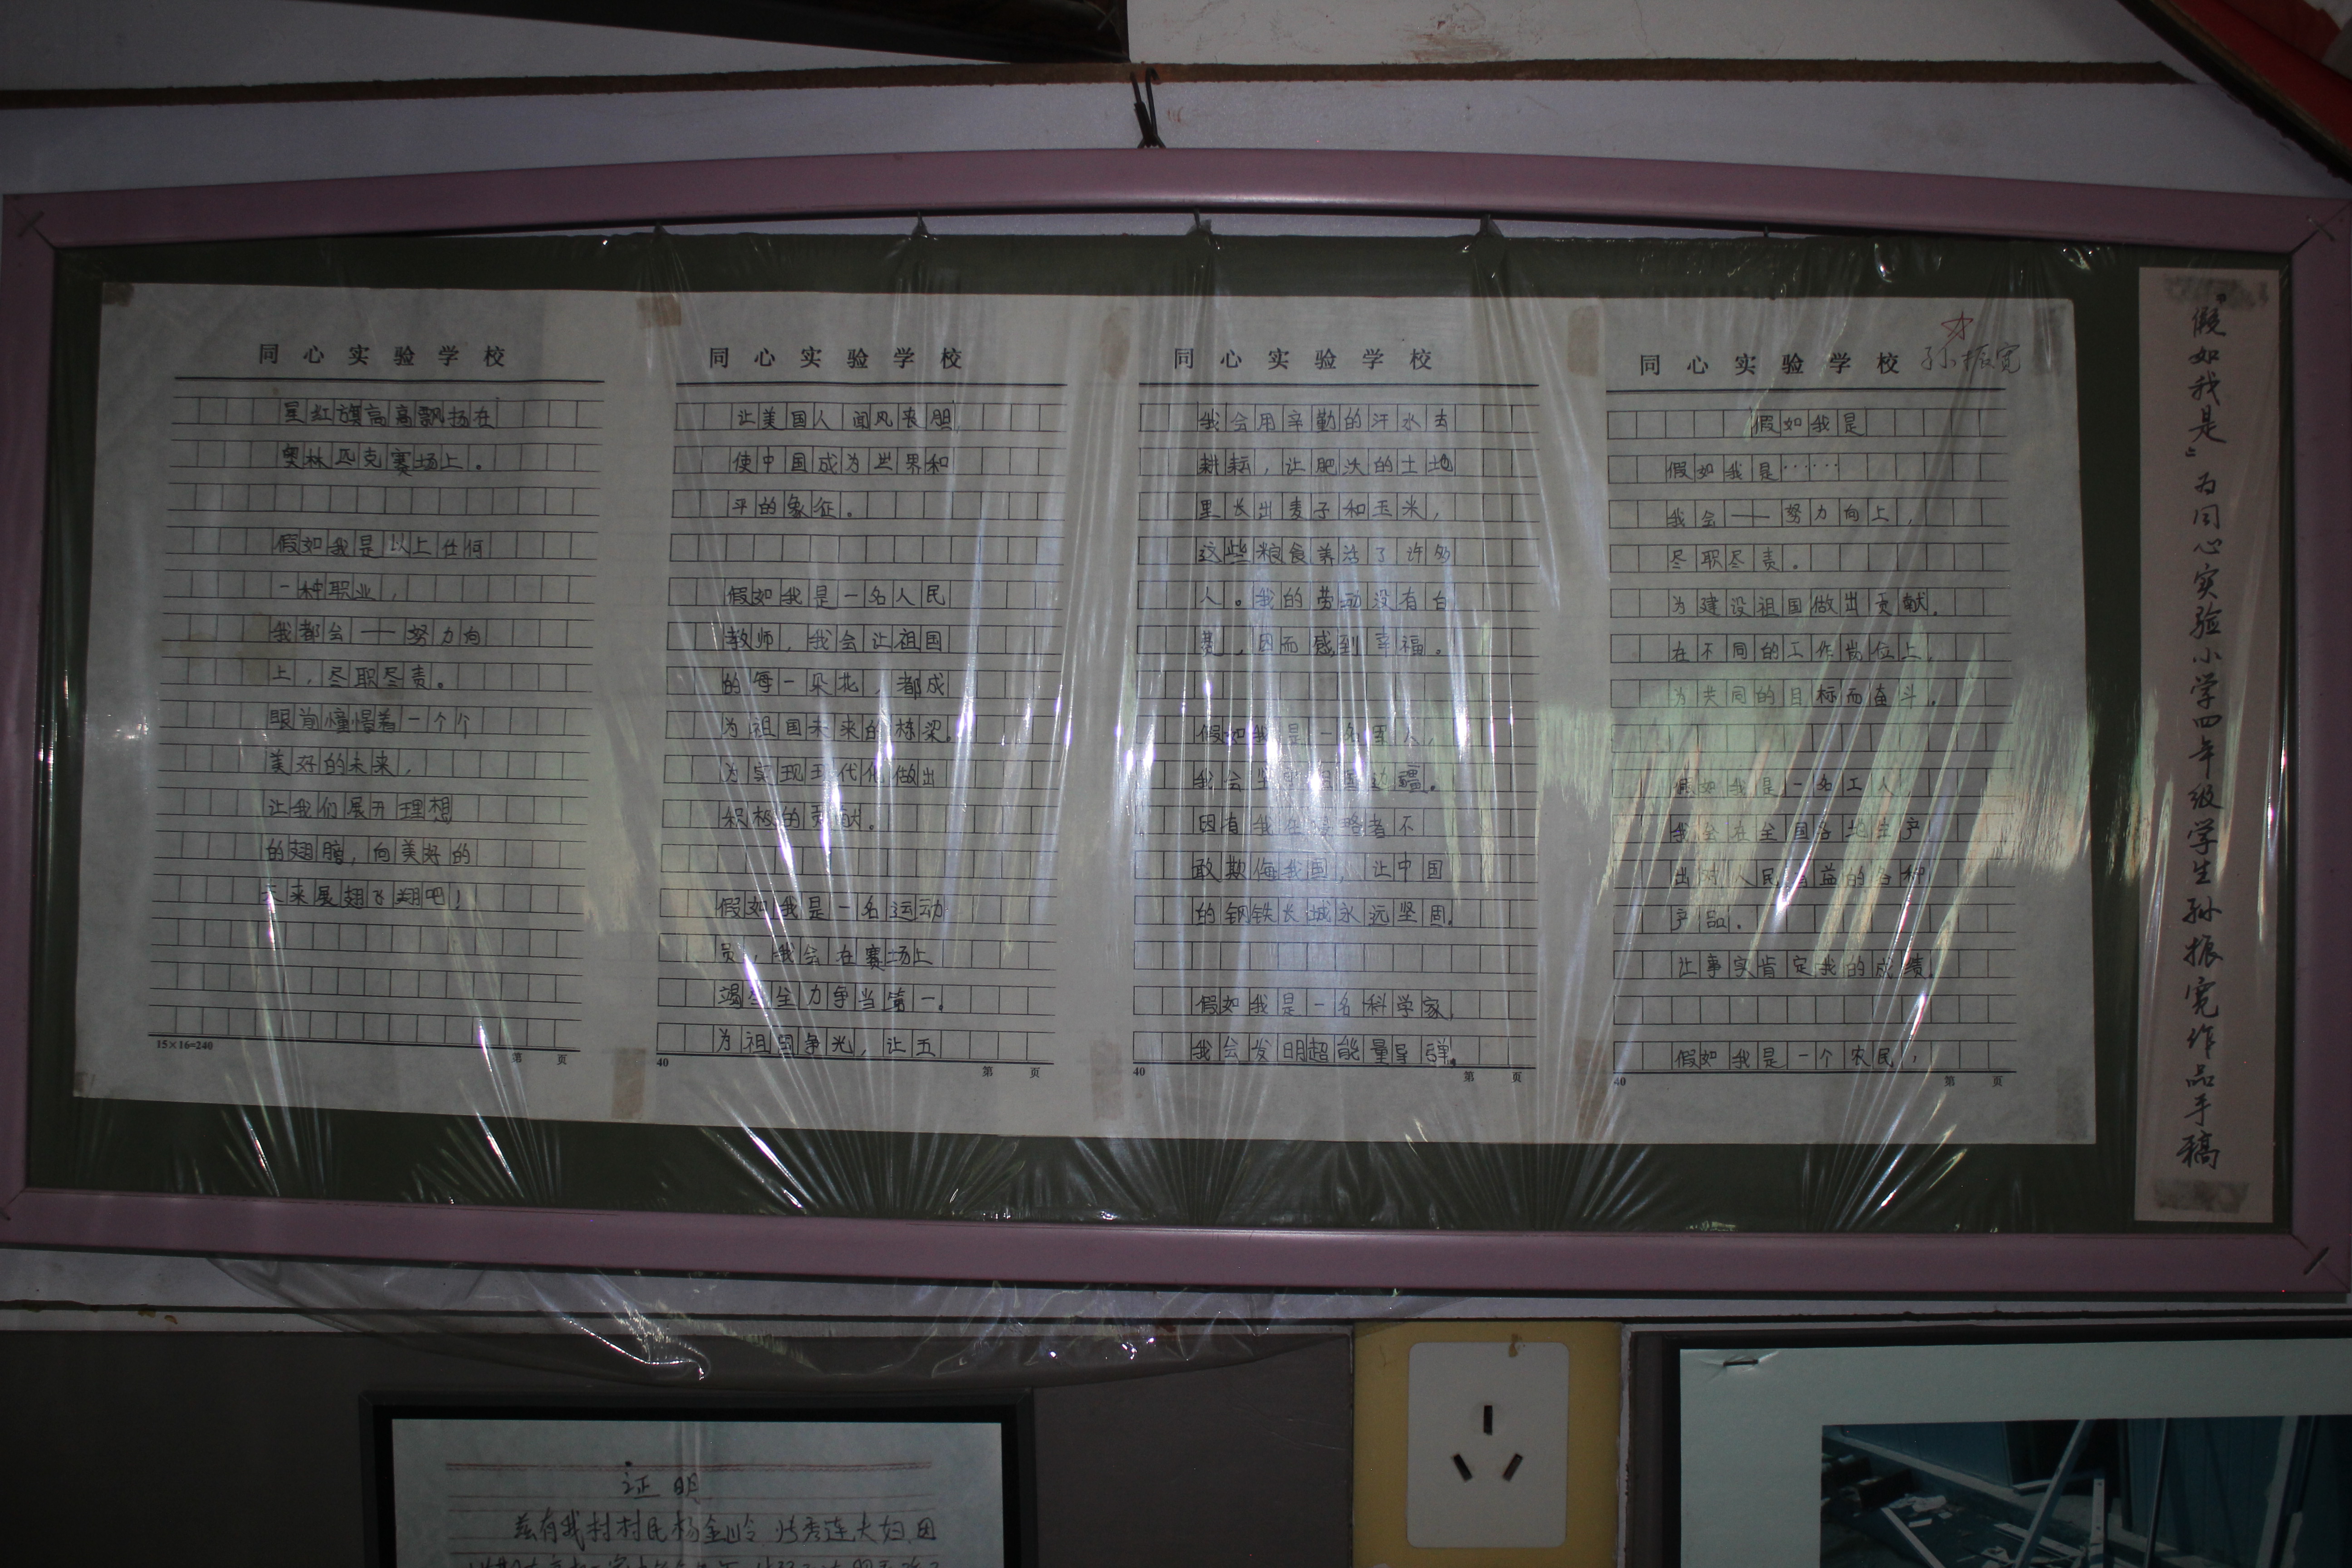 “假如我是”为同心实验小学四年级学生孙振宽作品手稿
同心实验学校 孙振宽
假如我是
假如我是……
我会——努力向上，
尽职尽责。
为建设祖国做出贡献。
在不同的工作岗位上，
为共同的目标而奋斗。
假如我是一名工人，
我会在全国各地生产
出对人民有益的各种
产品。
让事实肯定我的成绩。
假如我是一个农民，
40 第 页
同心实验学校
我会用辛勤的汗水去
耕耘，让肥沃的土地
里长出麦子和玉米，
这些粮食养活了许多
人。我的劳动没有白
费，因而感到幸福。
假如我是一名军人，
我会坚守祖国边疆。
因有我在侵略者不
敢欺侮我国，让中国
的钢铁长城永远坚固。
假如我是一名科学家，
我会发明超能量导弹。
40 第 页
同心实验学校
让美国人闻风丧胆，
使中国成为世界和
平的象征。
假如我是一名人民
教师，我会让祖国
的每一朵花，都成
为祖国未来的栋梁。
为实现现代化做出
积极的贡献。
假如我是一名运动
员，我会在赛场上
竭尽全力争当第一。
为祖国争光，让五
40 第 页
同心实验学校
星红旗高高飘扬在
奥林匹克赛场上。
假如我是以上任何
一种职业，
我都会——努力向
上，尽职尽责。
眼前憧憬着一个个
美好的未来，
让我们展开理想
的翅膀，向美好的
未来展翅飞翔吧！
15×16=240 第 页
证明
兹有我村村民杨金岭